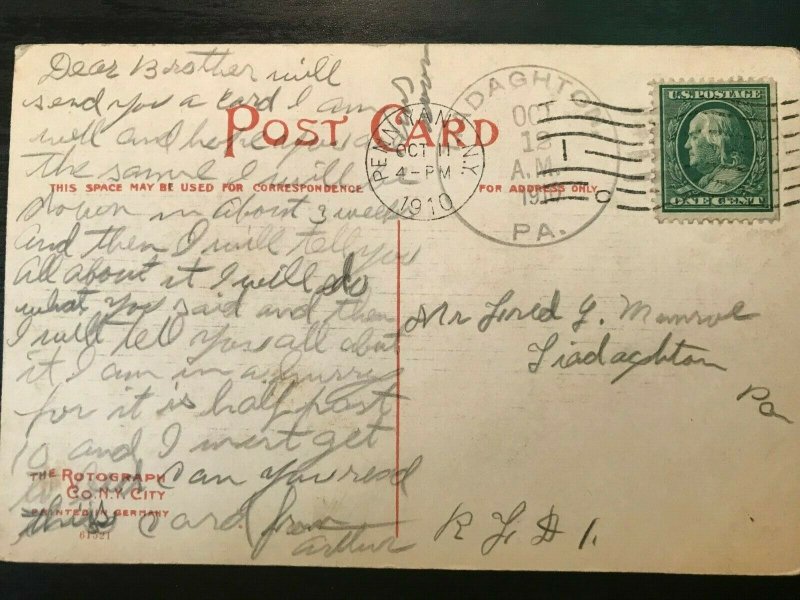 Dear Brother will
send you a card I am
well and hope you are
the same I will be
down in about 3 weeks
and then I will tell you
all about it I will do
what you said and then
I will tell you all about
it I am in a hurry
for it is half past
10 and I must get
to bed can you read
this card from
Arthur
POST CARD
THIS SPACE MAY BE USED FOR CORRESPONDENCE
FOR ADDRESS ONLY
PENN YAN, N.Y.
OCT 11
4-PM
1910
TIADAGHTON
OCT
12
A.M.
1910
PA.
1
U.S. POSTAGE
ONE CENT
Mr Fred G. Monroe
Tiadaghton
Pa
R F D 1.
THE ROTOGRAPH
CO. N.Y. CITY
PRINTED IN GERMANY
61521